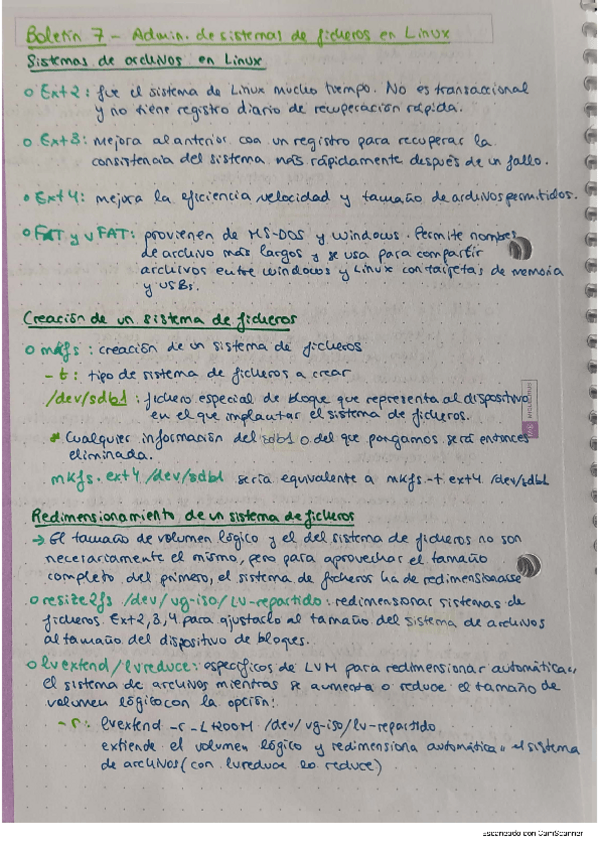 Boletín 7 - Admin. de sistemas de ficheros en Linux
Sistemas de archivos en Linux
o Ext2: fue el sistema de Linux mucho tiempo. No es transaccional
y no tiene registro diario de recuperación rápida.
o Ext3: mejora al anterior con un registro para recuperar la
consistencia del sistema más rápidamente después de un fallo.
o Ext4: mejora la eficiencia velocidad y tamaño de archivos permitidos.
o FAT y vFAT: provienen de MS-DOS y Windows. Permite nombres
de archivo más largos y se usa para compartir
archivos entre windows y Linux con tarjetas de memoria
y USBs.
Creación de un sistema de ficheros
o mkfs: creación de un sistema de ficheros
-t: tipo de sistema de ficheros a crear
/dev/sdb1: fichero especial de bloque que representa al dispositivo
en el que implantar el sistema de ficheros.
* Cualquier información del sdb1 o del que pongamos será entonces
eliminada.
mkfs.ext4 /dev/sdb1 sería equivalente a mkfs -t ext4 /dev/sdb1
Redimensionamiento de un sistema de ficheros
→ El tamaño de volumen lógico y el del sistema de ficheros no son
necesariamente el mismo, pero para aprovechar el tamaño
completo del primero, el sistema de ficheros ha de redimensionarse
o resize2fs /dev/vg-iso/lv-repartido: redimensionar sistemas de
ficheros Ext2,3,4 para ajustarlo al tamaño del sistema de archivos
al tamaño del dispositivo de bloques.
o lvextend/lvreduce: específicos de LVM para redimensionar automática"
el sistema de archivos mientras se aumenta o reduce el tamaño de
volumen lógico con la opción:
-r: lvextend -r -L 200M /dev/vg-iso/lv-repartido
extiende el volumen lógico y redimensiona automática" el sistema
de archivos (con lvreduce lo reduce)
Escaneado con CamScanner